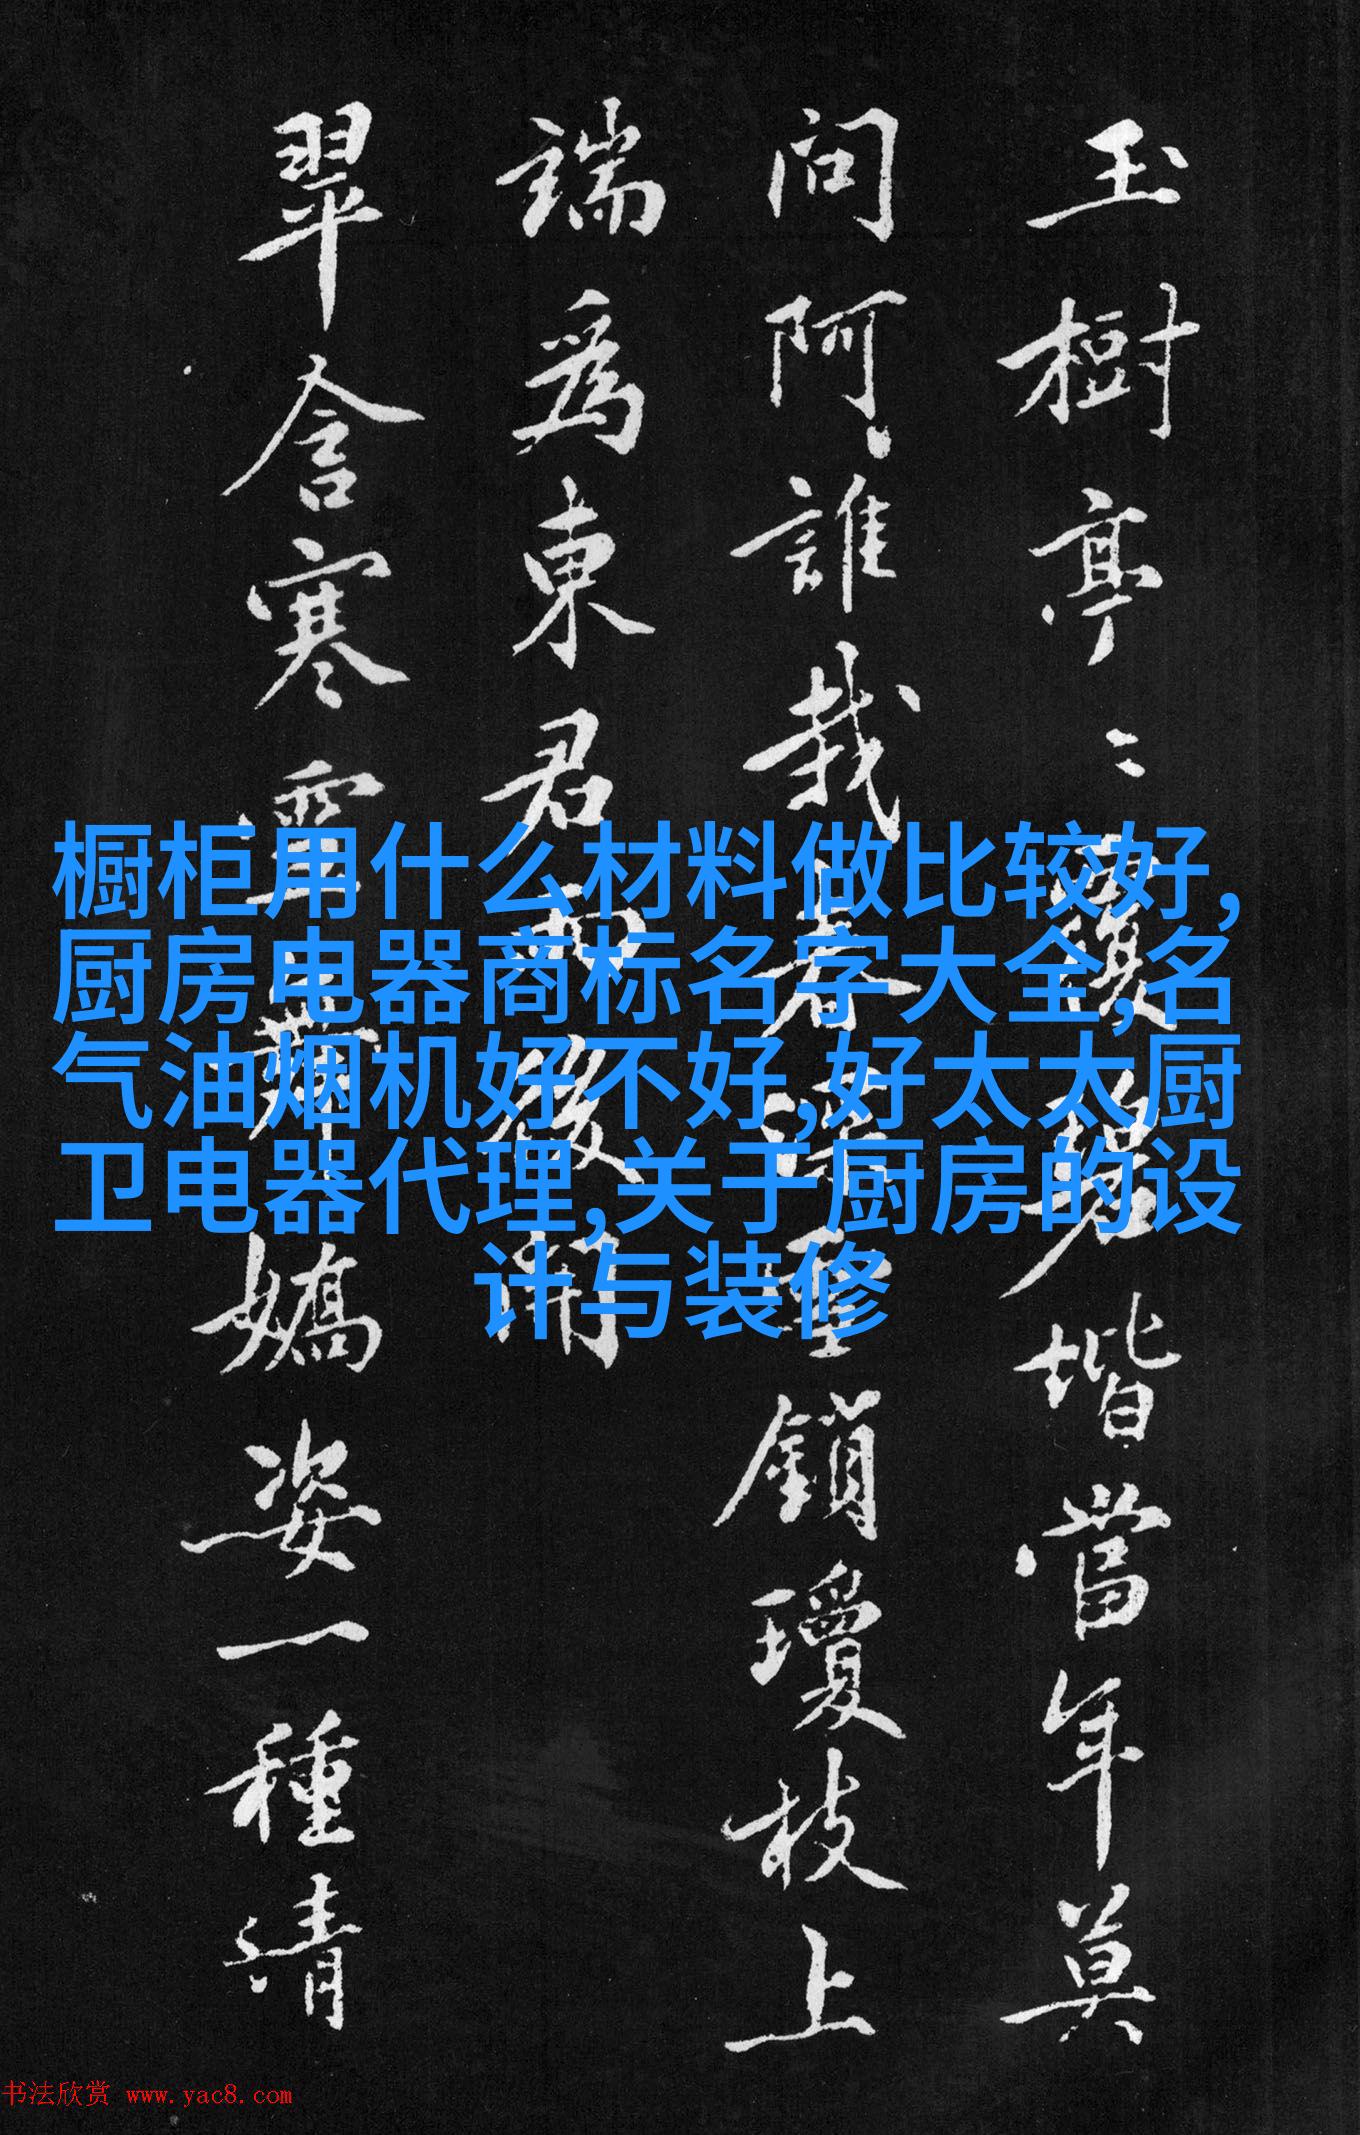 玉樹亭〻覆碧堦當年莫
問阿誰栽春深重鎖瓊枝上
端爲東君雨後開
翠含寒露嬌姿一種清
橱柜用什么材料做比较好,
厨房电器商标名字大全,名
气油烟机好不好,好太太厨
卫电器代理,关于厨房的设
计与装修
书法欣赏 www.yac8.com